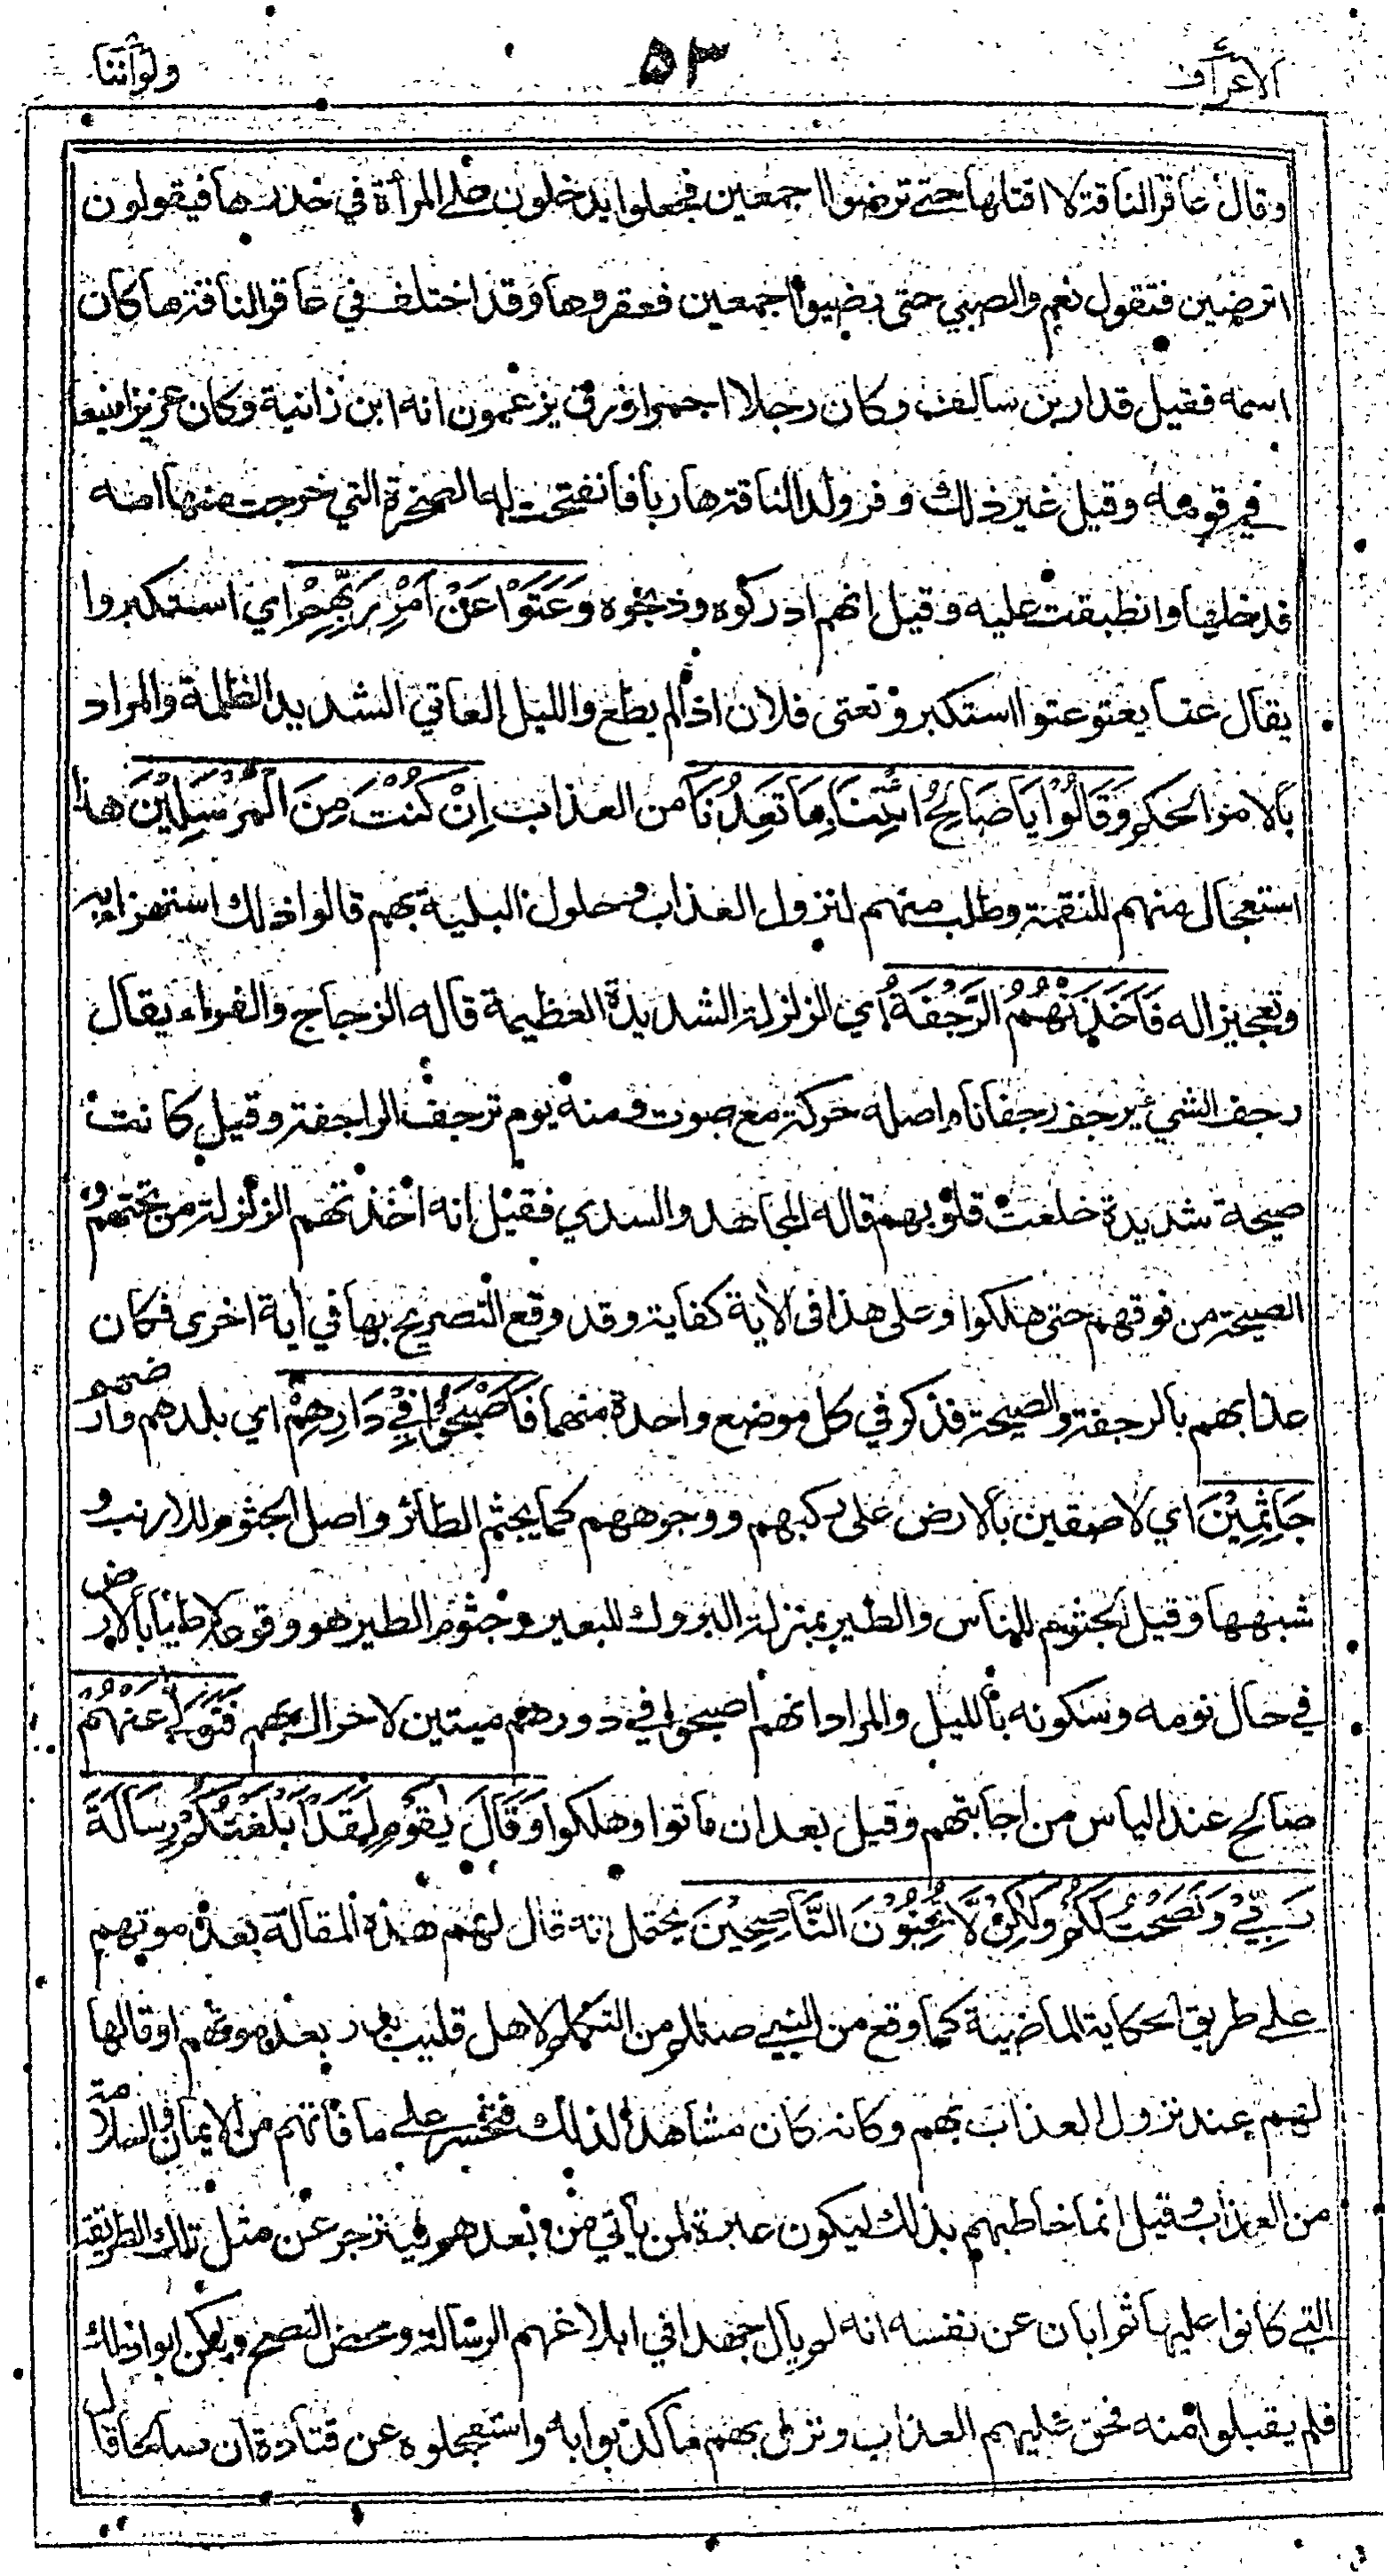 الاعراف
٥٣
ولواننا
وقال عاقر الناقة لا اقتلها حتى ترضوا اجمعين فجعلوا يدخلون على المرأة في خدرها فيقولون
اترضين فتقول نعم والصبي حتى رضوا اجمعين فعقروها وقد اختلف في عاقر الناقة ما كان
اسمه فقيل قدار بن سالف وكان رجلا احمر ازرق يزعمون انه ابن زانية وكان عزيزا منيعا
في قومه وقيل غير ذلك وفر ولد الناقة هاربا فانفتحت له الصخرة التي خرجت منها امه
فدخلها وانطبقت عليه وقيل انهم ادركوه وذبحوه وَعَتَوْا عَنْ اَمْرِ رَبِّهِمْ اي استكبروا
يقال عتا يعتو عتوا استكبر وتعتى فلان اذا لم يطع والليل العاتي الشديد الظلمة والمراد
بالامر الحكم وَقَالُوْا يَا صَالِحُ ائْتِنَا بِمَا تَعِدُنَا من العذاب اِنْ كُنْتَ مِنَ الْمُرْسَلِيْنَ هذا
استعجال منهم للنقمة وطلب منهم لنزول العذاب وحلول البلية بهم قالوا ذلك استهزاء به
وتعجيزا له فَاَخَذَتْهُمُ الرَّجْفَةُ اي الزلزلة الشديدة العظيمة قاله الزجاج والفراء يقال
رجف الشيء يرجف رجفانا واصله حركة مع صوت ومنه يوم ترجف الراجفة وقيل كانت
صيحة شديدة خلعت قلوبهم قاله المجاهد والسدي فقيل انه اخذتهم الزلزلة من تحتهم و
الصيحة من فوقهم حتى هلكوا وعلى هذا في الاية كفاية وقد وقع التصريح بها في آية اخرى فكان
عذابهم بالرجفة والصيحة فذكر في كل موضع واحدة منهما فَاَصْبَحُوْا فِيْ دَارِهِمْ اي بلدهم وارضهم
جَاثِمِيْنَ اي لاصقين بالارض على ركبهم ووجوههم كما يجثم الطائر واصل الجثوم للارنب و
شبهها وقيل الجثوم للناس والطير بمنزلة البروك للبعير وجثوم الطير هو وقوعه لاطئا بالارض
في حال نومه وسكونه بالليل والمراد انهم اصبحوا في دورهم ميتين لا حراك بهم فَتَوَلّٰى عَنْهُمْ
صالح عند الياس من اجابتهم وقيل بعد ان ماتوا وهلكوا وَقَالَ يٰقَوْمِ لَقَدْ اَبْلَغْتُكُمْ رِسَالَةَ
رَبِّيْ وَنَصَحْتُ لَكُمْ وَلٰكِنْ لَّا تُحِبُّوْنَ النَّاصِحِيْنَ يحتمل انه قال لهم هذه المقالة بعد موتهم
على طريق الحكاية الماضية كما وقع من النبي صللم من التكلم لاهل قليب بدر بعد موتهم او قالها
لهم عند نزول العذاب بهم وكانه كان مشاهدا لذلك فتحسر على ما فاتهم من الايمان والسلامة
من العذاب وقيل انما خاطبهم بذلك ليكون عبرة لمن يأتي من بعدهم فينزجر عن مثل تلك الطريقة
التي كانوا عليها ثم ابان عن نفسه انه لم يال جهدا في ابلاغهم الرسالة ومحض النصح ولكن ابوا ذلك
فلم يقبلوا منه فحق عليهم العذاب ونزل بهم ما كذبوا به واستعجلوه عن قتادة ان صالحا قال